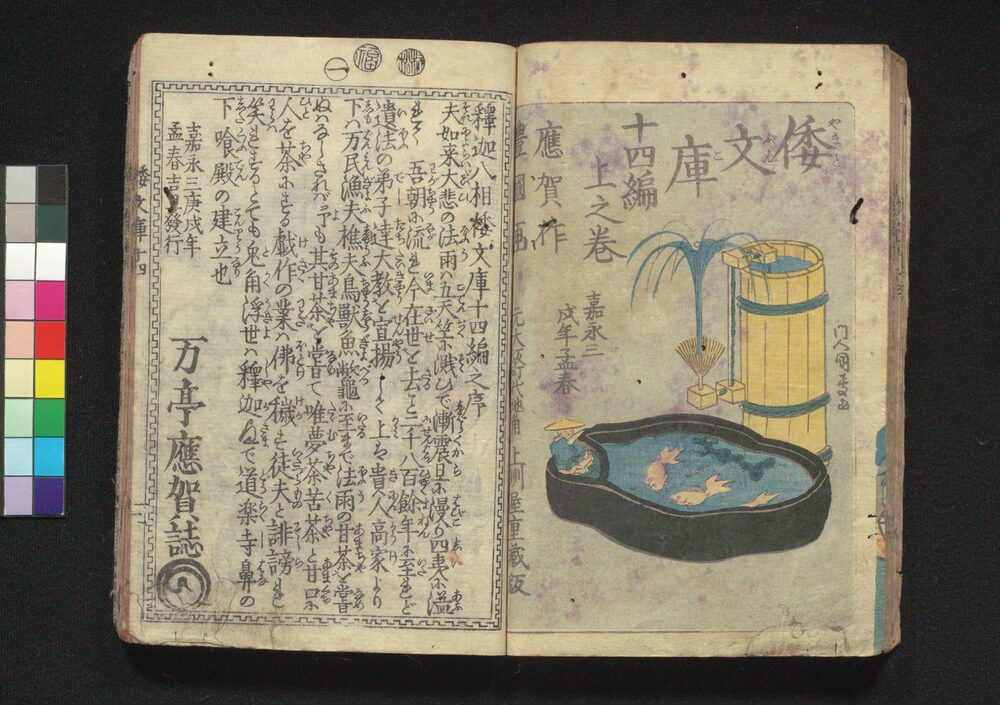 倭文庫
やまとぶんこ
十四編
上之巻
應賀作
豊國画
嘉永三
戌年孟春
元大坂町代地角
上州屋重蔵版
釋迦八相倭文庫十四編之序
夫如来大悲の法雨ハ五天竺に濺ひで漸震旦に慢り四夷に溢
吾朝に流れ今在世を去こと二千八百餘年に至れど
遺法の弟子達大教を宣揚し上ミ貴人高家より
下ハ万民漁夫樵夫鳥獣魚鼈に至まで法雨の甘茶を甞
ぬハなしされバ予も其甘茶を甞て唯夢茶苦茶と甘口に
人を茶にする戯作の業ハ佛を穢す徒夫と誹謗れ
笑れするとても兎角浮世ハ釋迦んで道楽寺鼻の
下喰殿の建立也
嘉永三庚戌年
孟春吉日發行
万亭應賀誌
倭文庫十四
一
福